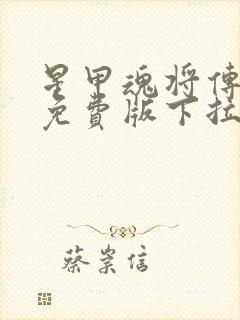 星甲魂将傳
免費版下拉
蔡崇信